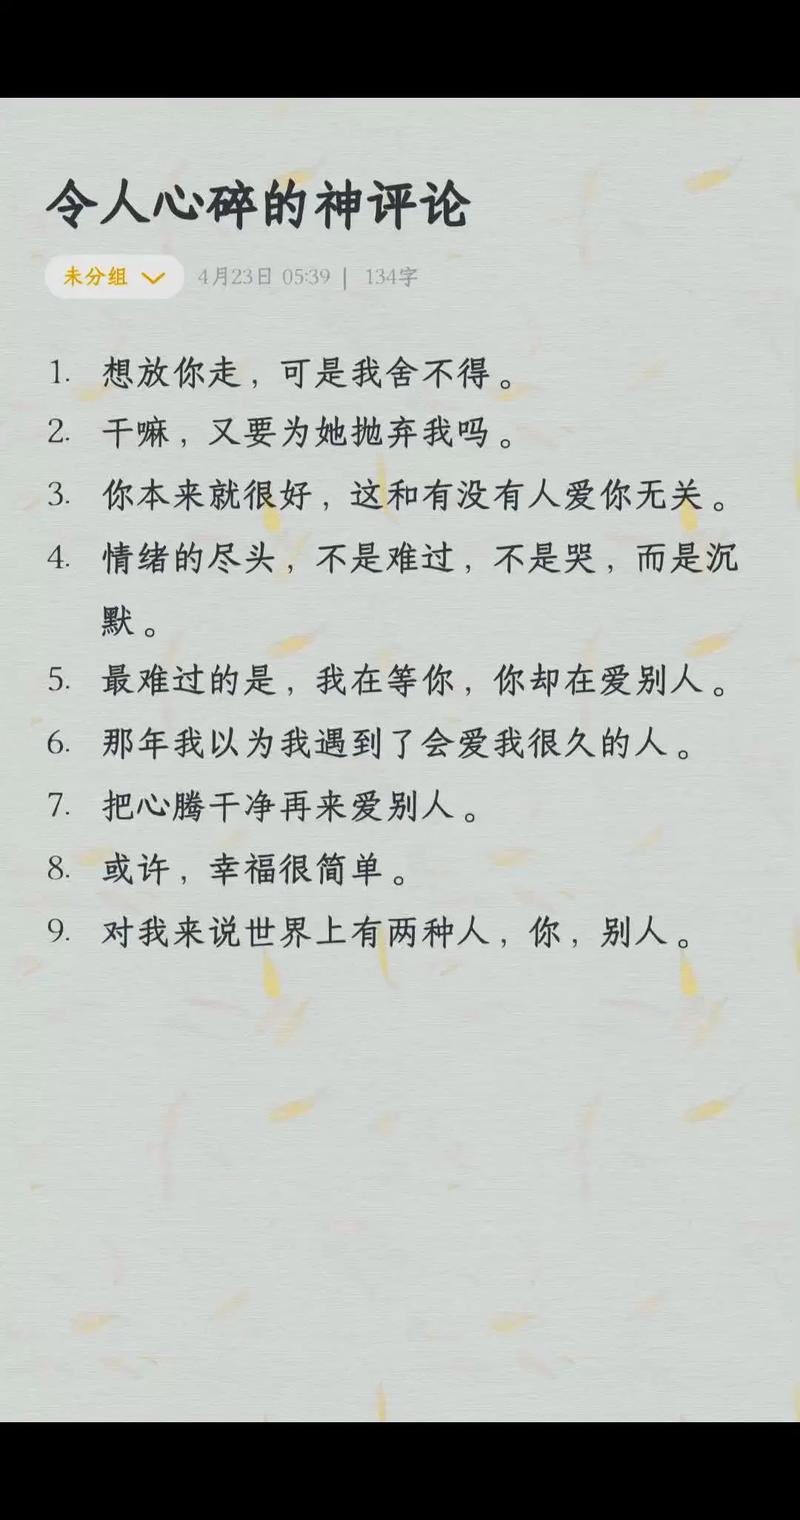 令人心碎的神评论
未分组 4月23日 05:39 | 134字
1. 想放你走，可是我舍不得。
2. 干嘛，又要为她抛弃我吗。
3. 你本来就很好，这和有没有人爱你无关。
4. 情绪的尽头，不是难过，不是哭，而是沉
默。
5. 最难过的是，我在等你，你却在爱别人。
6. 那年我以为我遇到了会爱我很久的人。
7. 把心腾干净再来爱别人。
8. 或许，幸福很简单。
9. 对我来说世界上有两种人，你，别人。